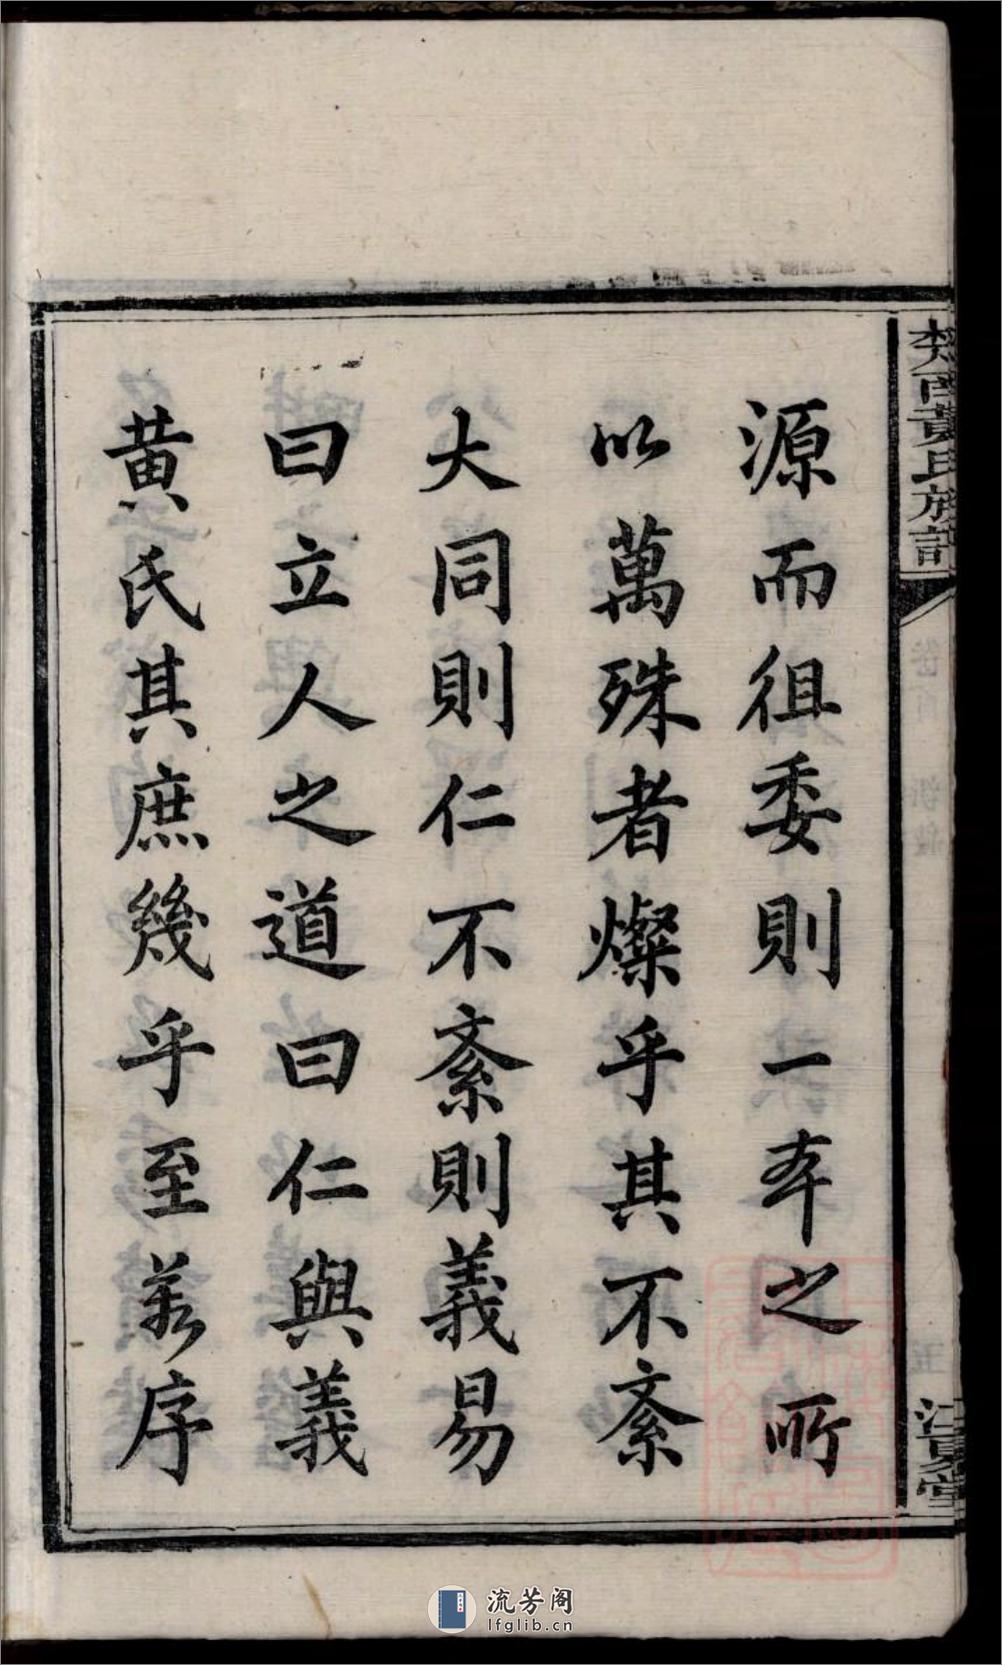 源而徂委則一本之所
以萬殊者燦乎其不紊
大同則仁不紊則義易
曰立人之道曰仁與義
黄氏其庶幾乎至若序
黃氏族譜
江夏堂
流芳阁
lfglib.cn